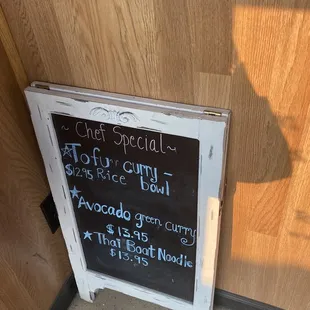 ~ Chef Special ~
★Tofu curry -
$12.95 Rice bowl
★Avocado green curry
$13.95
★Thai Boat Noodle
$13.95